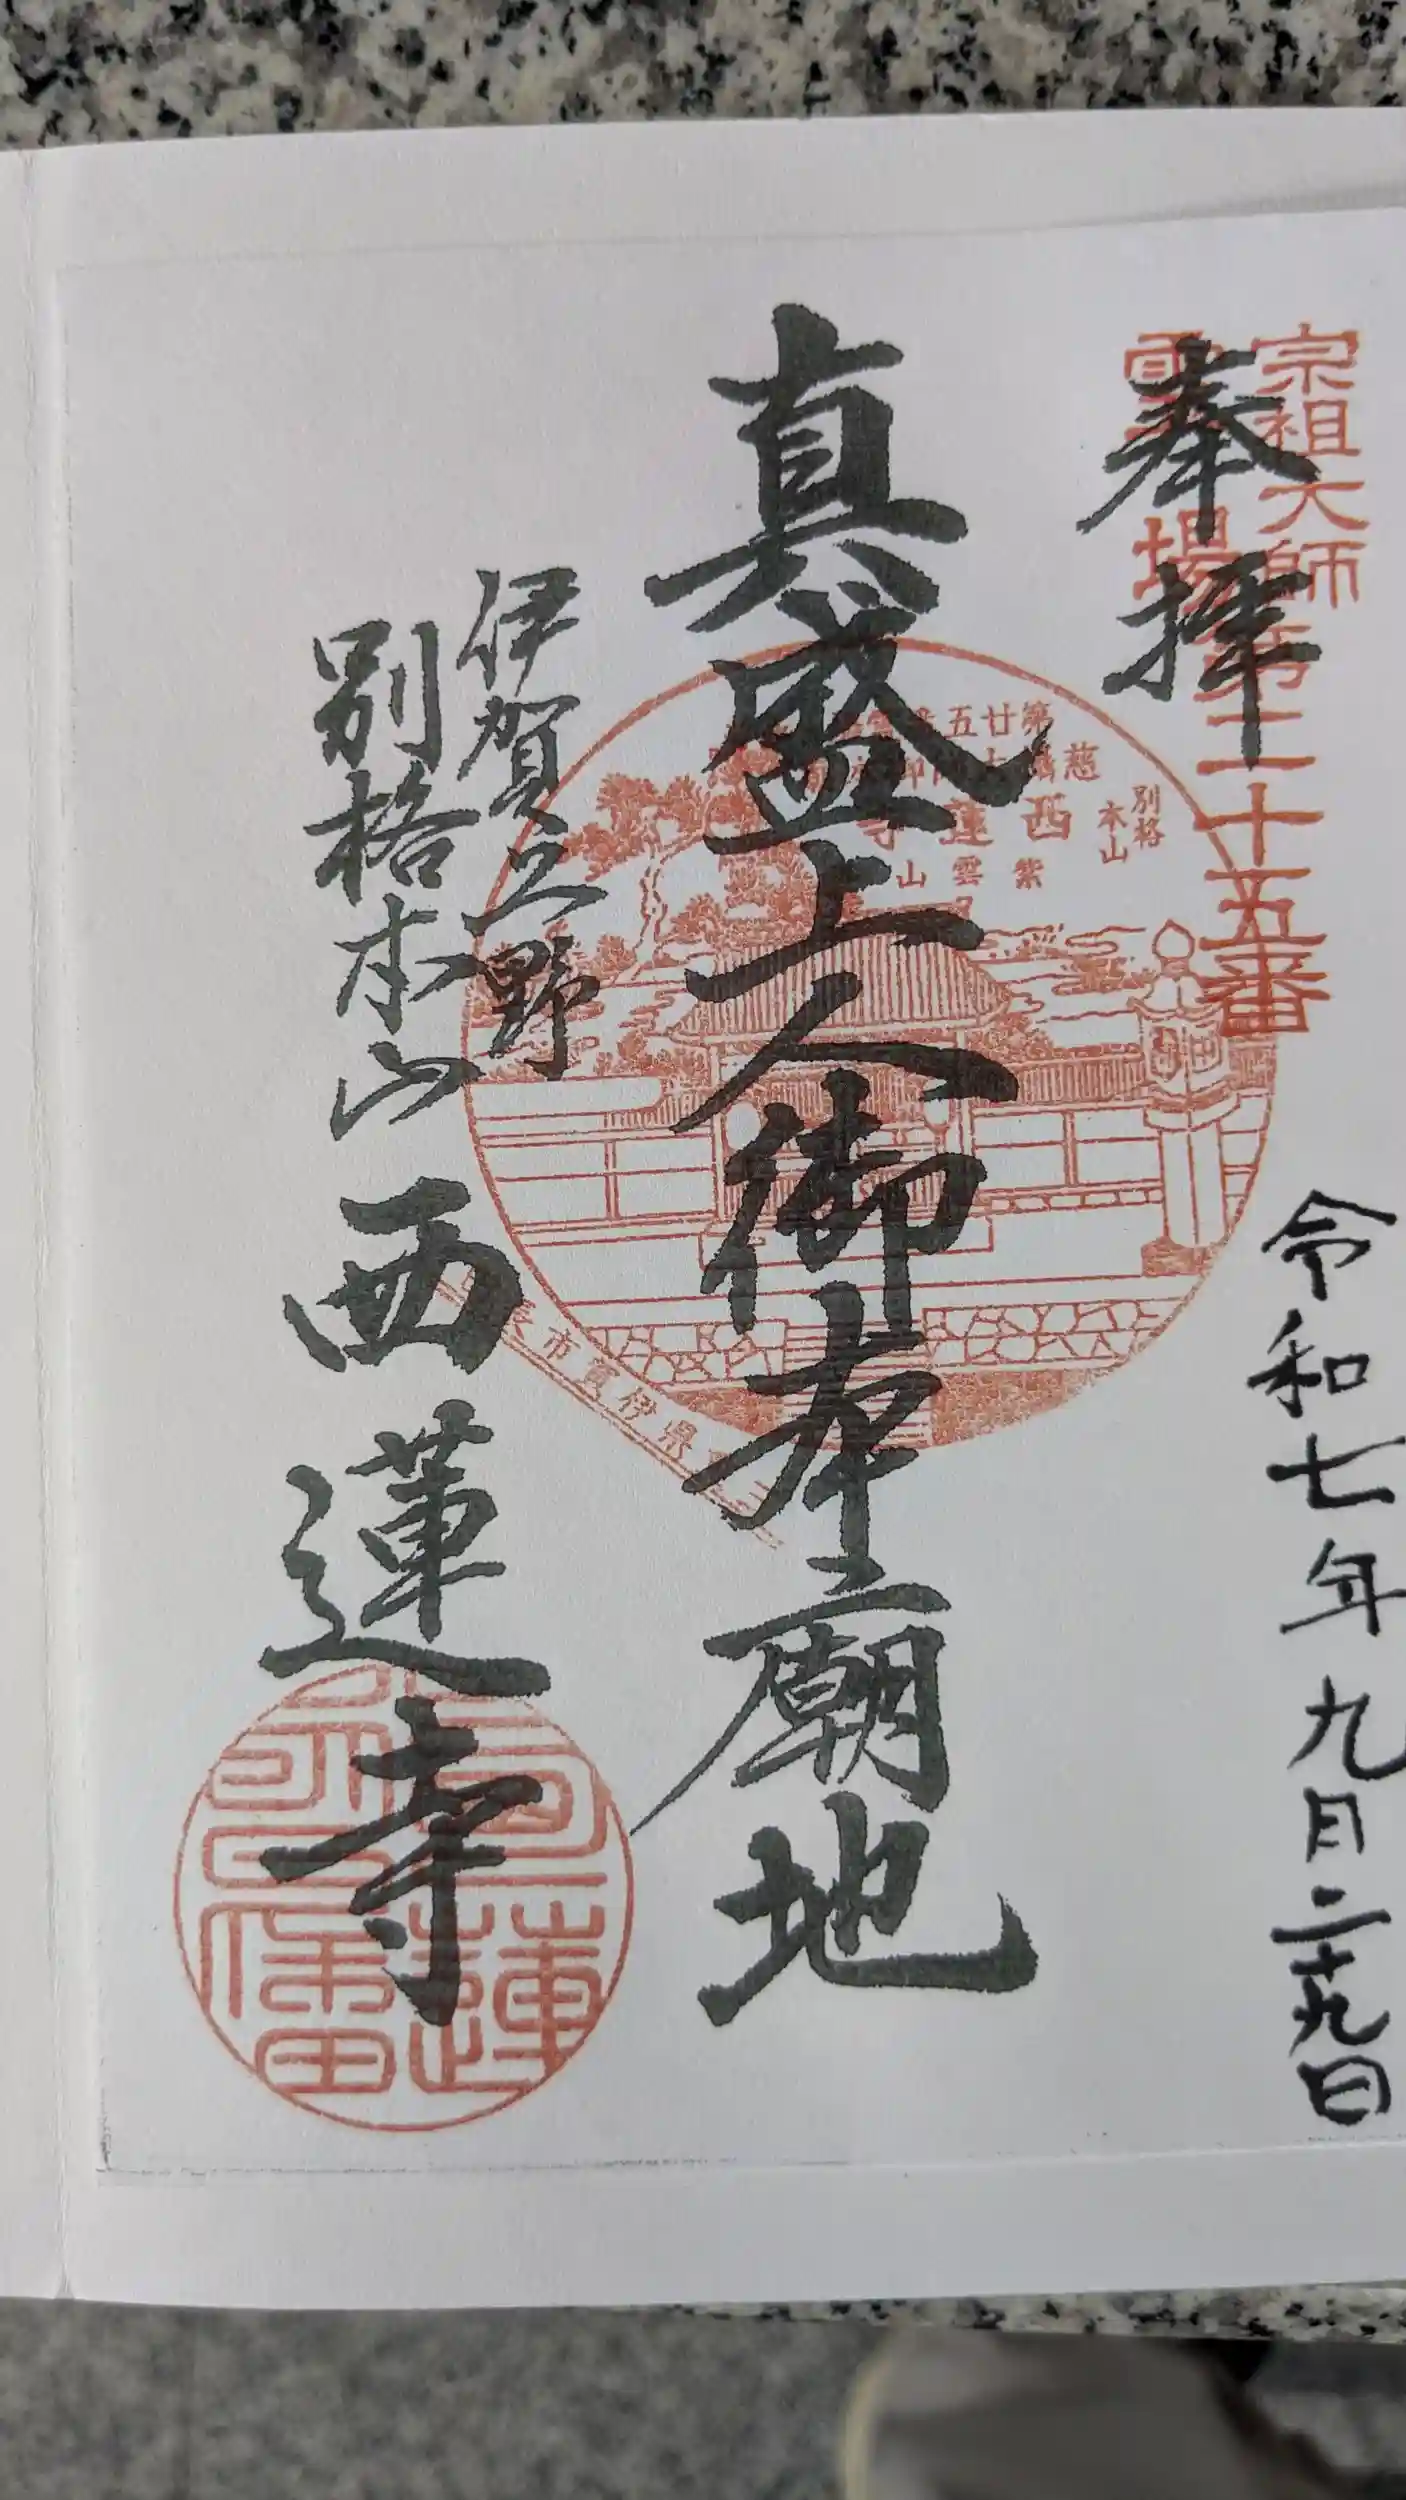 宗祖大師
霊場第二十五番
奉拝
令和七年九月二十九日
真盛上人御本廟地
第廿五
慈
別格
本山
西蓮寺
紫雲山
伊賀上野
別格本山
西蓮寺
県伊賀市長